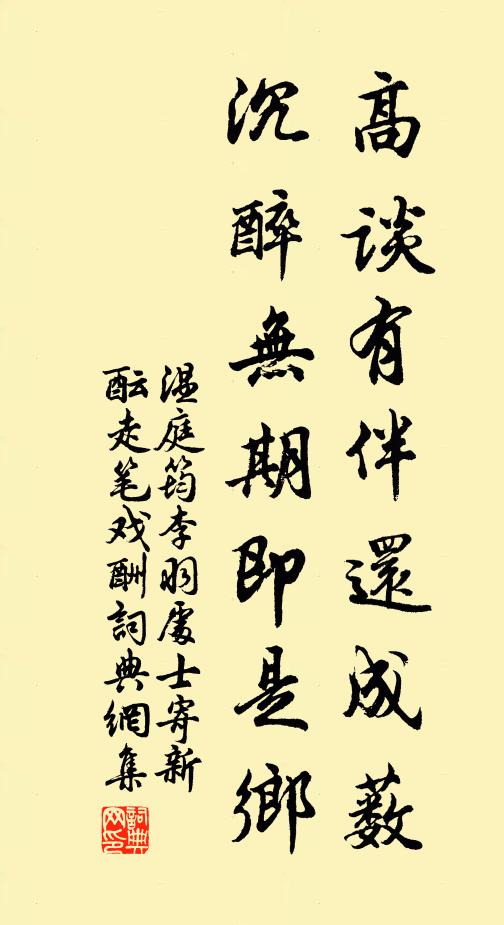 高談有伴還成藪
沉醉無期即是鄉
溫庭筠李羽處士寄新
酝走笔戏酬詞典網集
詞典
网印